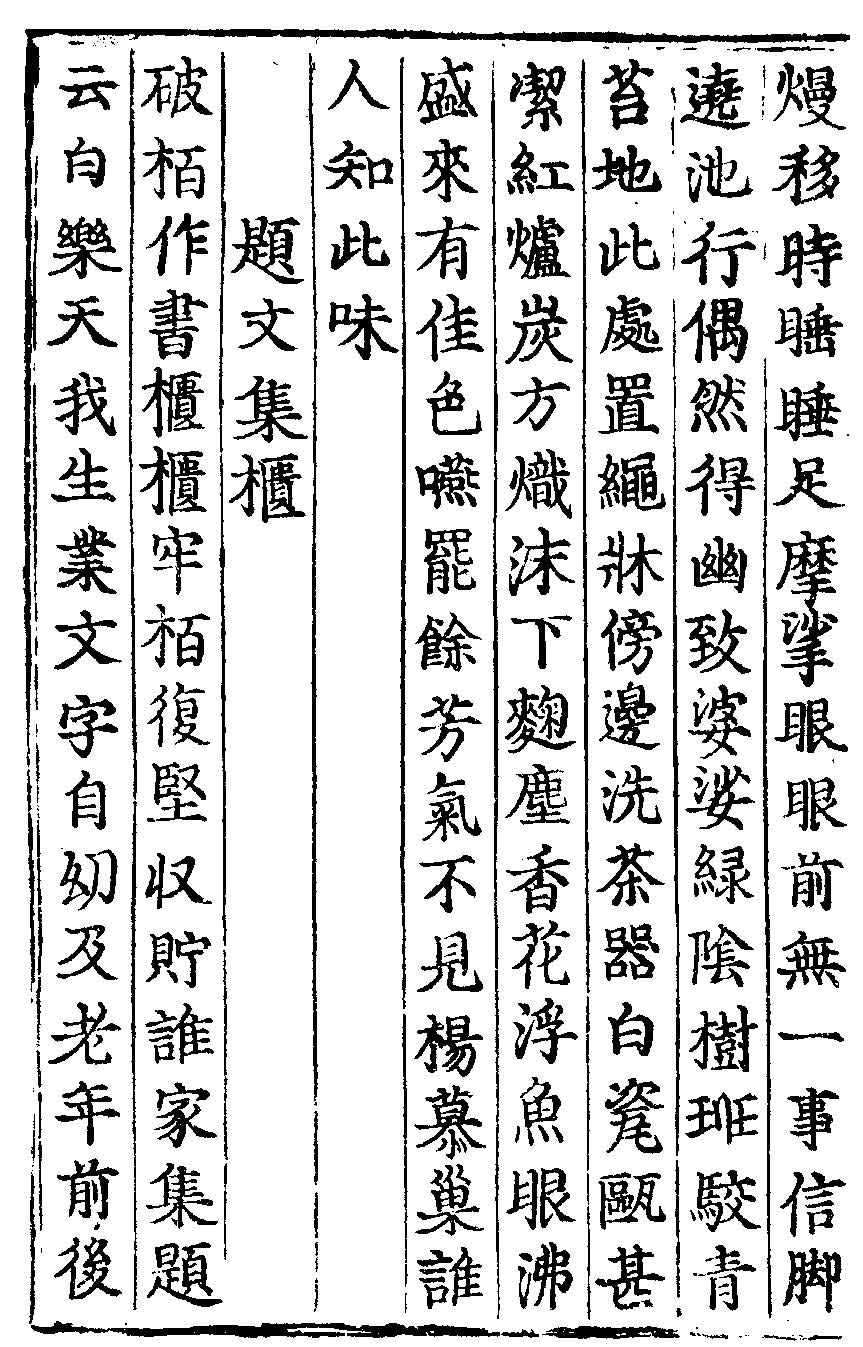 熳移時睡睡足摩挲眼眼前無一事信脚
遶池行偶然得幽致婆娑緑陰樹班駮青
苔地此處置繩牀傍邊洗茶器白瓷甌甚
潔紅爐炭方熾沫下麴塵香花浮魚眼沸
盛來有佳色嚥罷餘芳氣不見楊慕巢誰
人知此味
題文集櫃
破栢作書櫃櫃牢栢復堅収貯誰家集題
云白樂天我生業文字自㓜及老年前後